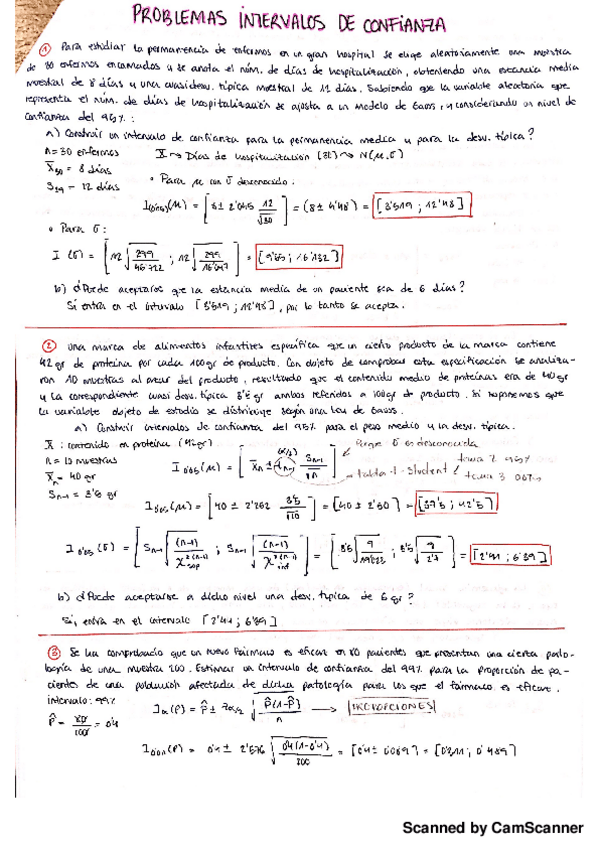 PROBLEMAS INTERVALOS DE CONFIANZA
① Para estudiar la permanencia de enfermos en un gran hospital se elige aleatoriamente una muestra
de 30 enfermos encamados y se anota el núm. de días de hospitalización, obteniendo una estancia media
muestral de 8 días y una cuasidesv. típica muestral de 12 días. Sabiendo que la variable aleatoria que
representa el núm. de días de hospitalización se ajusta a un modelo de Gauss, y considerando un nivel de
confianza del 95%:
a) Construir un intervalo de confianza para la permanencia media y para la desv. típica?
n=30 enfermos X → Días de hospitalización (30) → N(μ,σ)
X̄30 = 8 días • Para μ con σ desconocido:
S29 = 12 días I0'05(μ) = [8 ± 2'045 12/√30] = (8 ± 4'48) = [3'519 ; 12'48]
• Para σ:
I (σ) = [12 √(299/46'722) ; 12 √(299/16'047)] = [9'55 ; 16'132]
b) ¿Puede aceptarse que la estancia media de un paciente sea de 6 días?
Si entra en el intervalo [3'519 ; 12'48], por lo tanto se acepta.
② Una marca de alimentos infantiles especifica que un cierto producto de la marca contiene
42 gr de proteína por cada 100 gr de producto. Con objeto de comprobar esta especificación se analiza-
ron 10 muestras al azar del producto, resultando que el contenido medio de proteínas era de 40 gr
y la correspondiente cuasi desv. típica 3'5 gr ambos referidos a 100 gr de producto. Si suponemos que
la variable objeto de estudio se distribuye según una ley de Gauss.
a) Construir intervalos de confianza del 95% para el peso medio y la desv. típica.
X : contenido en proteína (42 gr) porque σ es desconocida
n = 10 muestras I0'05(μ) = [X̄n ± tn-1 (α/2) Sn-1/√n] tabla t-Student
X̄n = 40 gr
Sn-1 = 3'5 gr I0'05(μ) = [40 ± 2'262 3'5/√10] = (40 ± 2'50) = [37'5 ; 42'5]
I0'05 (σ) = [Sn-1 √((n-1)/χ²(n-1) sup) ; Sn-1 √((n-1)/χ²(n-1) inf)] = [3'5 √(9/19'023) ; 3'5 √(9/2'7)] = [2'41 ; 6'39]
b) ¿Puede aceptarse a dicho nivel una desv. típica de 6 gr?
Si, entra en el intervalo [2'41 ; 6'39]
③ Se ha comprobado que un nuevo fármaco es eficaz en 80 pacientes que presentan una cierta pato-
logía de una muestra 200. Estimar un intervalo de confianza del 99% para la proporción de pa-
cientes de una población afectada de dicha patología para los que el fármaco es eficaz.
intervalo: 99% Iα(P) = P̂ ± zα/2 √(P̂(1-P̂)/n) → PROPORCIONES
P̂ = 80/200 = 0'4
I0'01(P) = 0'4 ± 2'576 √(0'4(1-0'4)/200) = [0'4 ± 0'089] = [0'311 ; 0'489]
Scanned by CamScanner